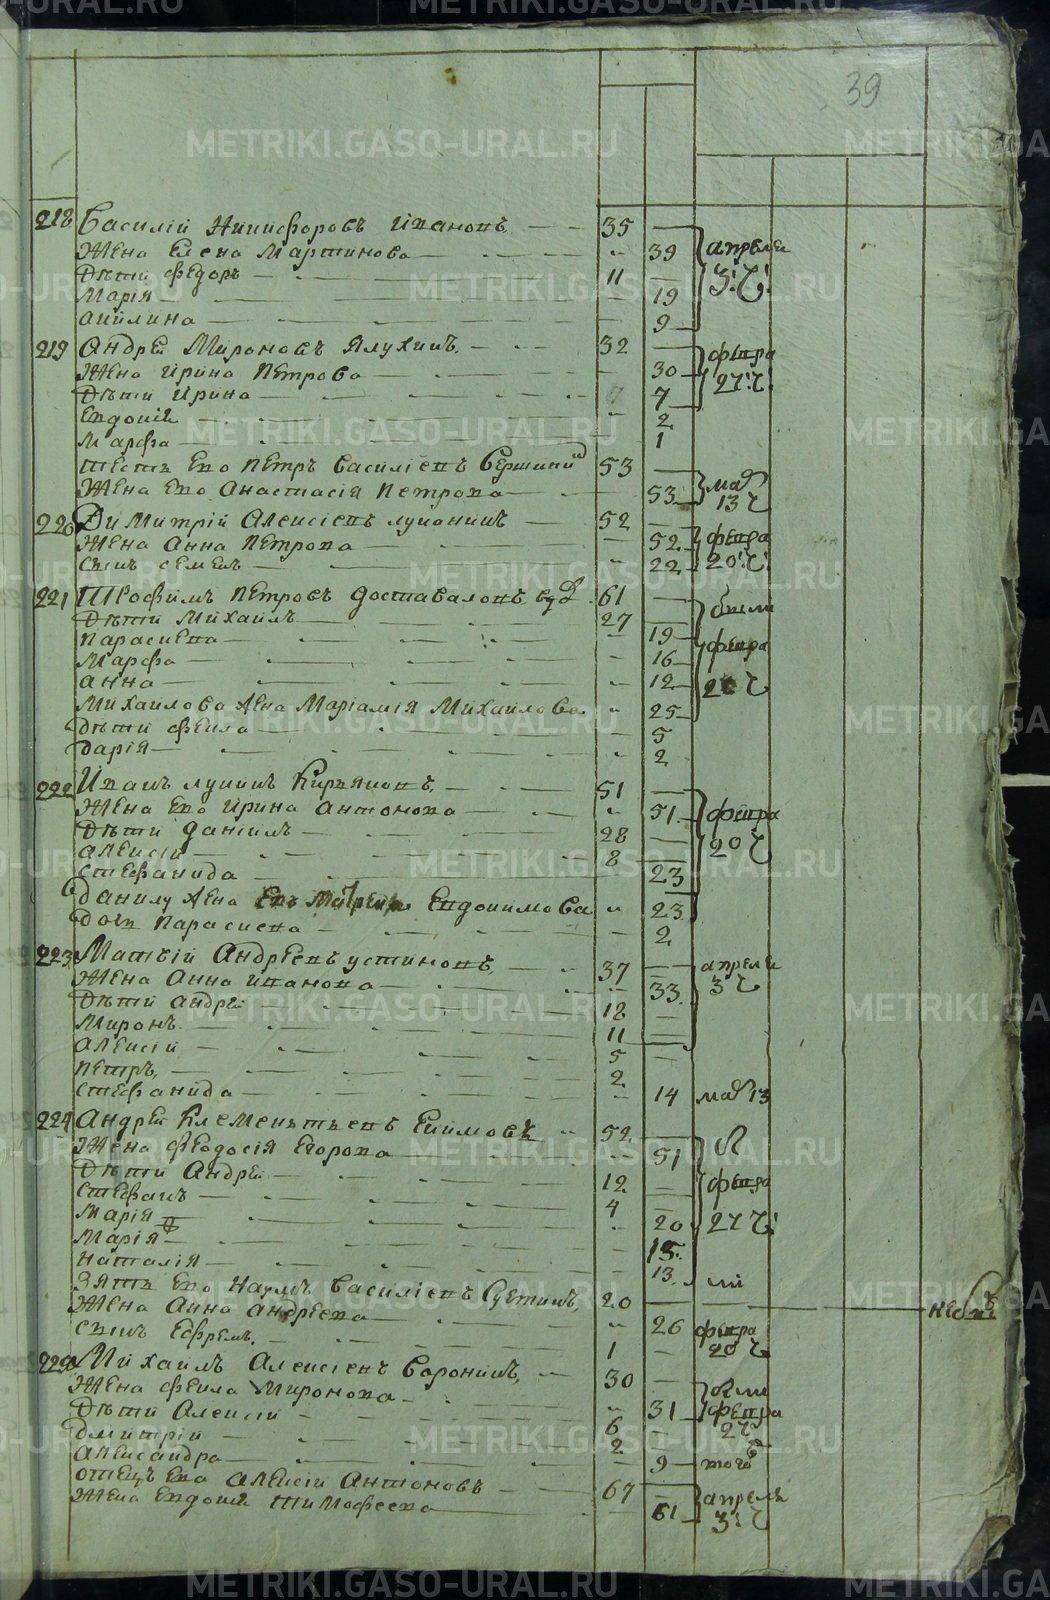 39
218 Василій Никифоровъ Ивановъ 35
Жена Елена Мартинова 39 апреля
Дѣти Федоръ 11 3: Ч:
Марія 19
Акилина 9
219 Андрей Мироновъ Ялухинъ 32 февра
Жена Ирина Петрова 30 27: Ч:
Дѣти Ирина 7
Евдокія 2
Марфа 1
тесть Ево Петръ Василіевъ 53
Жена Ево Анастасія Петрова 53 маѧ 13 Ч
220 Димитрій Алексіевъ Луконинъ 52
Жена Анна Петрова 52 февра
сынъ Семенъ 22 20: Ч:
221 Трофимъ Петровъ Доставаловъ вд 61
Дѣти Михаилъ 27 были
Параскева 19 февра
Марфа 16
Анна 12 20 Ч
Михайлова жена Маріамія Михайлова 25
Дѣти Фекла 5
Дарія 2
222 Иванъ Лукинъ Кирьяновъ 51
Жена Ево Ирина Антонова 51 февра
Дѣти Даніилъ 28 20 Ч
Алексій 8
Стефанида 23
Данилу жена Ево Матрена Евдокимова 23
дочь Параскева 2
223 Матвій Андреевъ Устиновъ 37 апреля
Жена Анна Иванова 33 3 Ч
Дѣти Андрей 18
Миронъ 11
Алексій 5
Петръ 2
Стефанида 14 маѧ 13
224 Андрей Клементьевъ Екимовъ 52
Жена Феодосія Егорова 51
Дѣти Андрей 12 февра
Стефанъ 4
Марія 20 27 Ч:
Марія 15
Наталія 13
Зять Ево Наумъ Василіевъ Суетинъ 20 небылъ
Жена Анна Андреева 26 февра
сынъ Ефремъ 1 20 Ч
225 Михаилъ Алексіевъ Воронинъ 30
Жена Фекла Миронова 31 были февра
Дѣти Алексій 6 27
Дмитрій 2
Александра 9 тогоъ
отецъ Ево Алексій Антоновъ 67 апреля
Жена Евдокія Тимофеева 61 3: Ч
METRIKI.GASO-URAL.RU